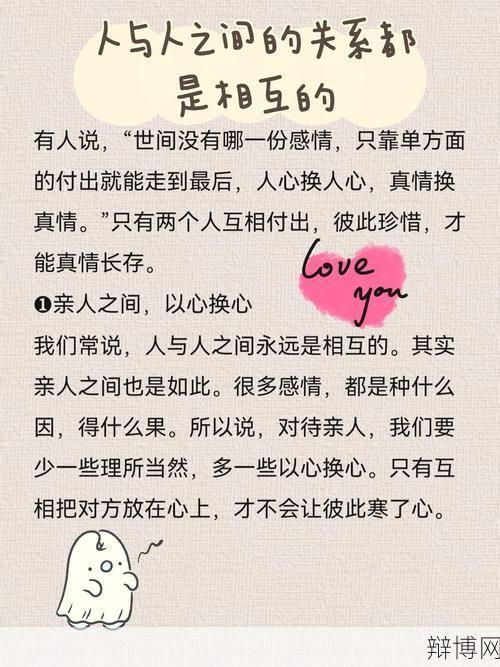 人与人之间的关系都
是相互的
有人说，“世间没有哪一份感情，只靠单方面
的付出就能走到最后，人心换人心，真情换
真情。”只有两个人互相付出，彼此珍惜，才
能真情长存。
Love
you
❶亲人之间，以心换心
我们常说，人与人之间永远是相互的。其实
亲人之间也是如此。很多感情，都是种什么
因，得什么果。所以说，对待亲人，我们要
少一些理所当然，多一些以心换心。只有互
相把对方放在心上，才不会让彼此寒了心。
辩博网